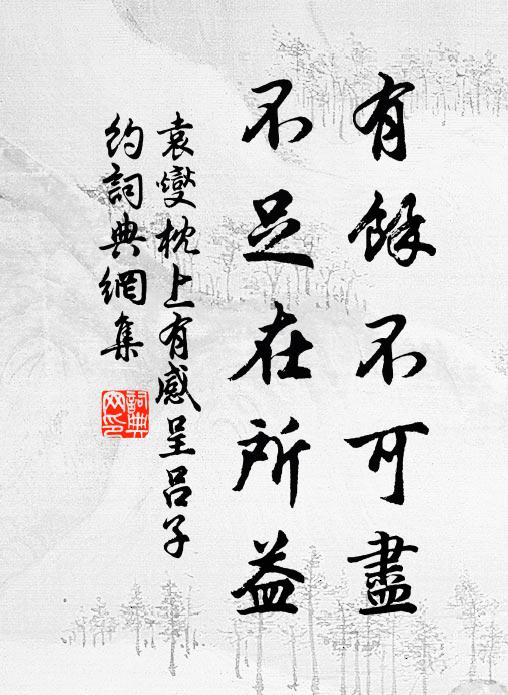 有餘不可盡
不足在所益
袁燮枕上有感呈呂子
約詞典網集
詞典
网印